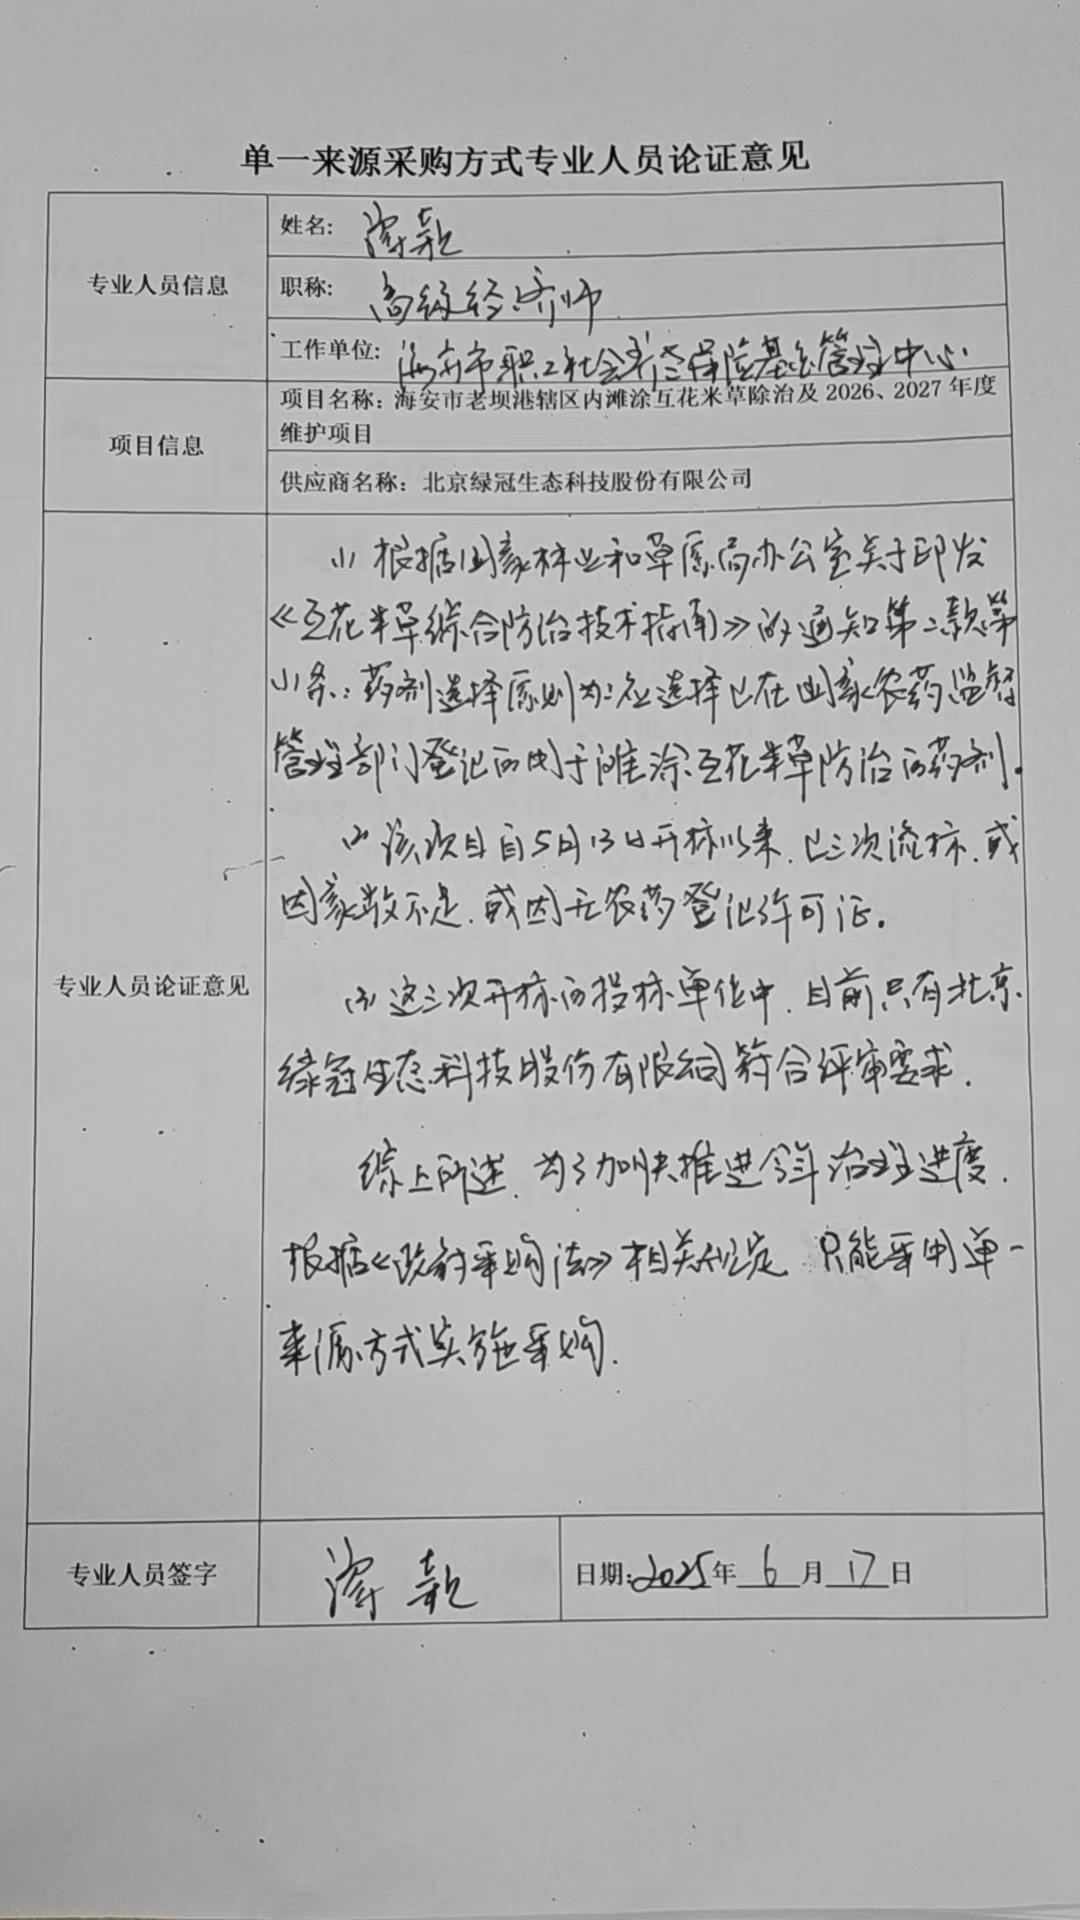 单一来源采购方式专业人员论证意见
专业人员信息
姓名:
职称: 高级经济师
工作单位: 海安市职工社会养老保险基金管理中心
项目信息
项目名称：海安市老坝港辖区内滩涂互花米草除治及 2026、2027 年度
维护项目
供应商名称：北京绿冠生态科技股份有限公司
专业人员论证意见
(1) 根据国家林业和草原局办公室关于印发
《互花米草综合防治技术指南》的通知第二款第
(1)条：药剂选择原则为：应选择已在国家农药监督
管理部门登记的用于滩涂互花米草防治的药剂.
(2) 该项目自5月13日开标以来，已三次流标，或
因家数不足，或因无农药登记许可证。
(3) 这三次开标的投标单位中，目前只有北京
绿冠生态科技股份有限公司符合评审要求.
综上所述，为了加快推进今年治理进度，
根据《政府采购法》相关规定，只能采用单一
来源方式实施采购.
专业人员签字
日期:2025年 6 月 17 日